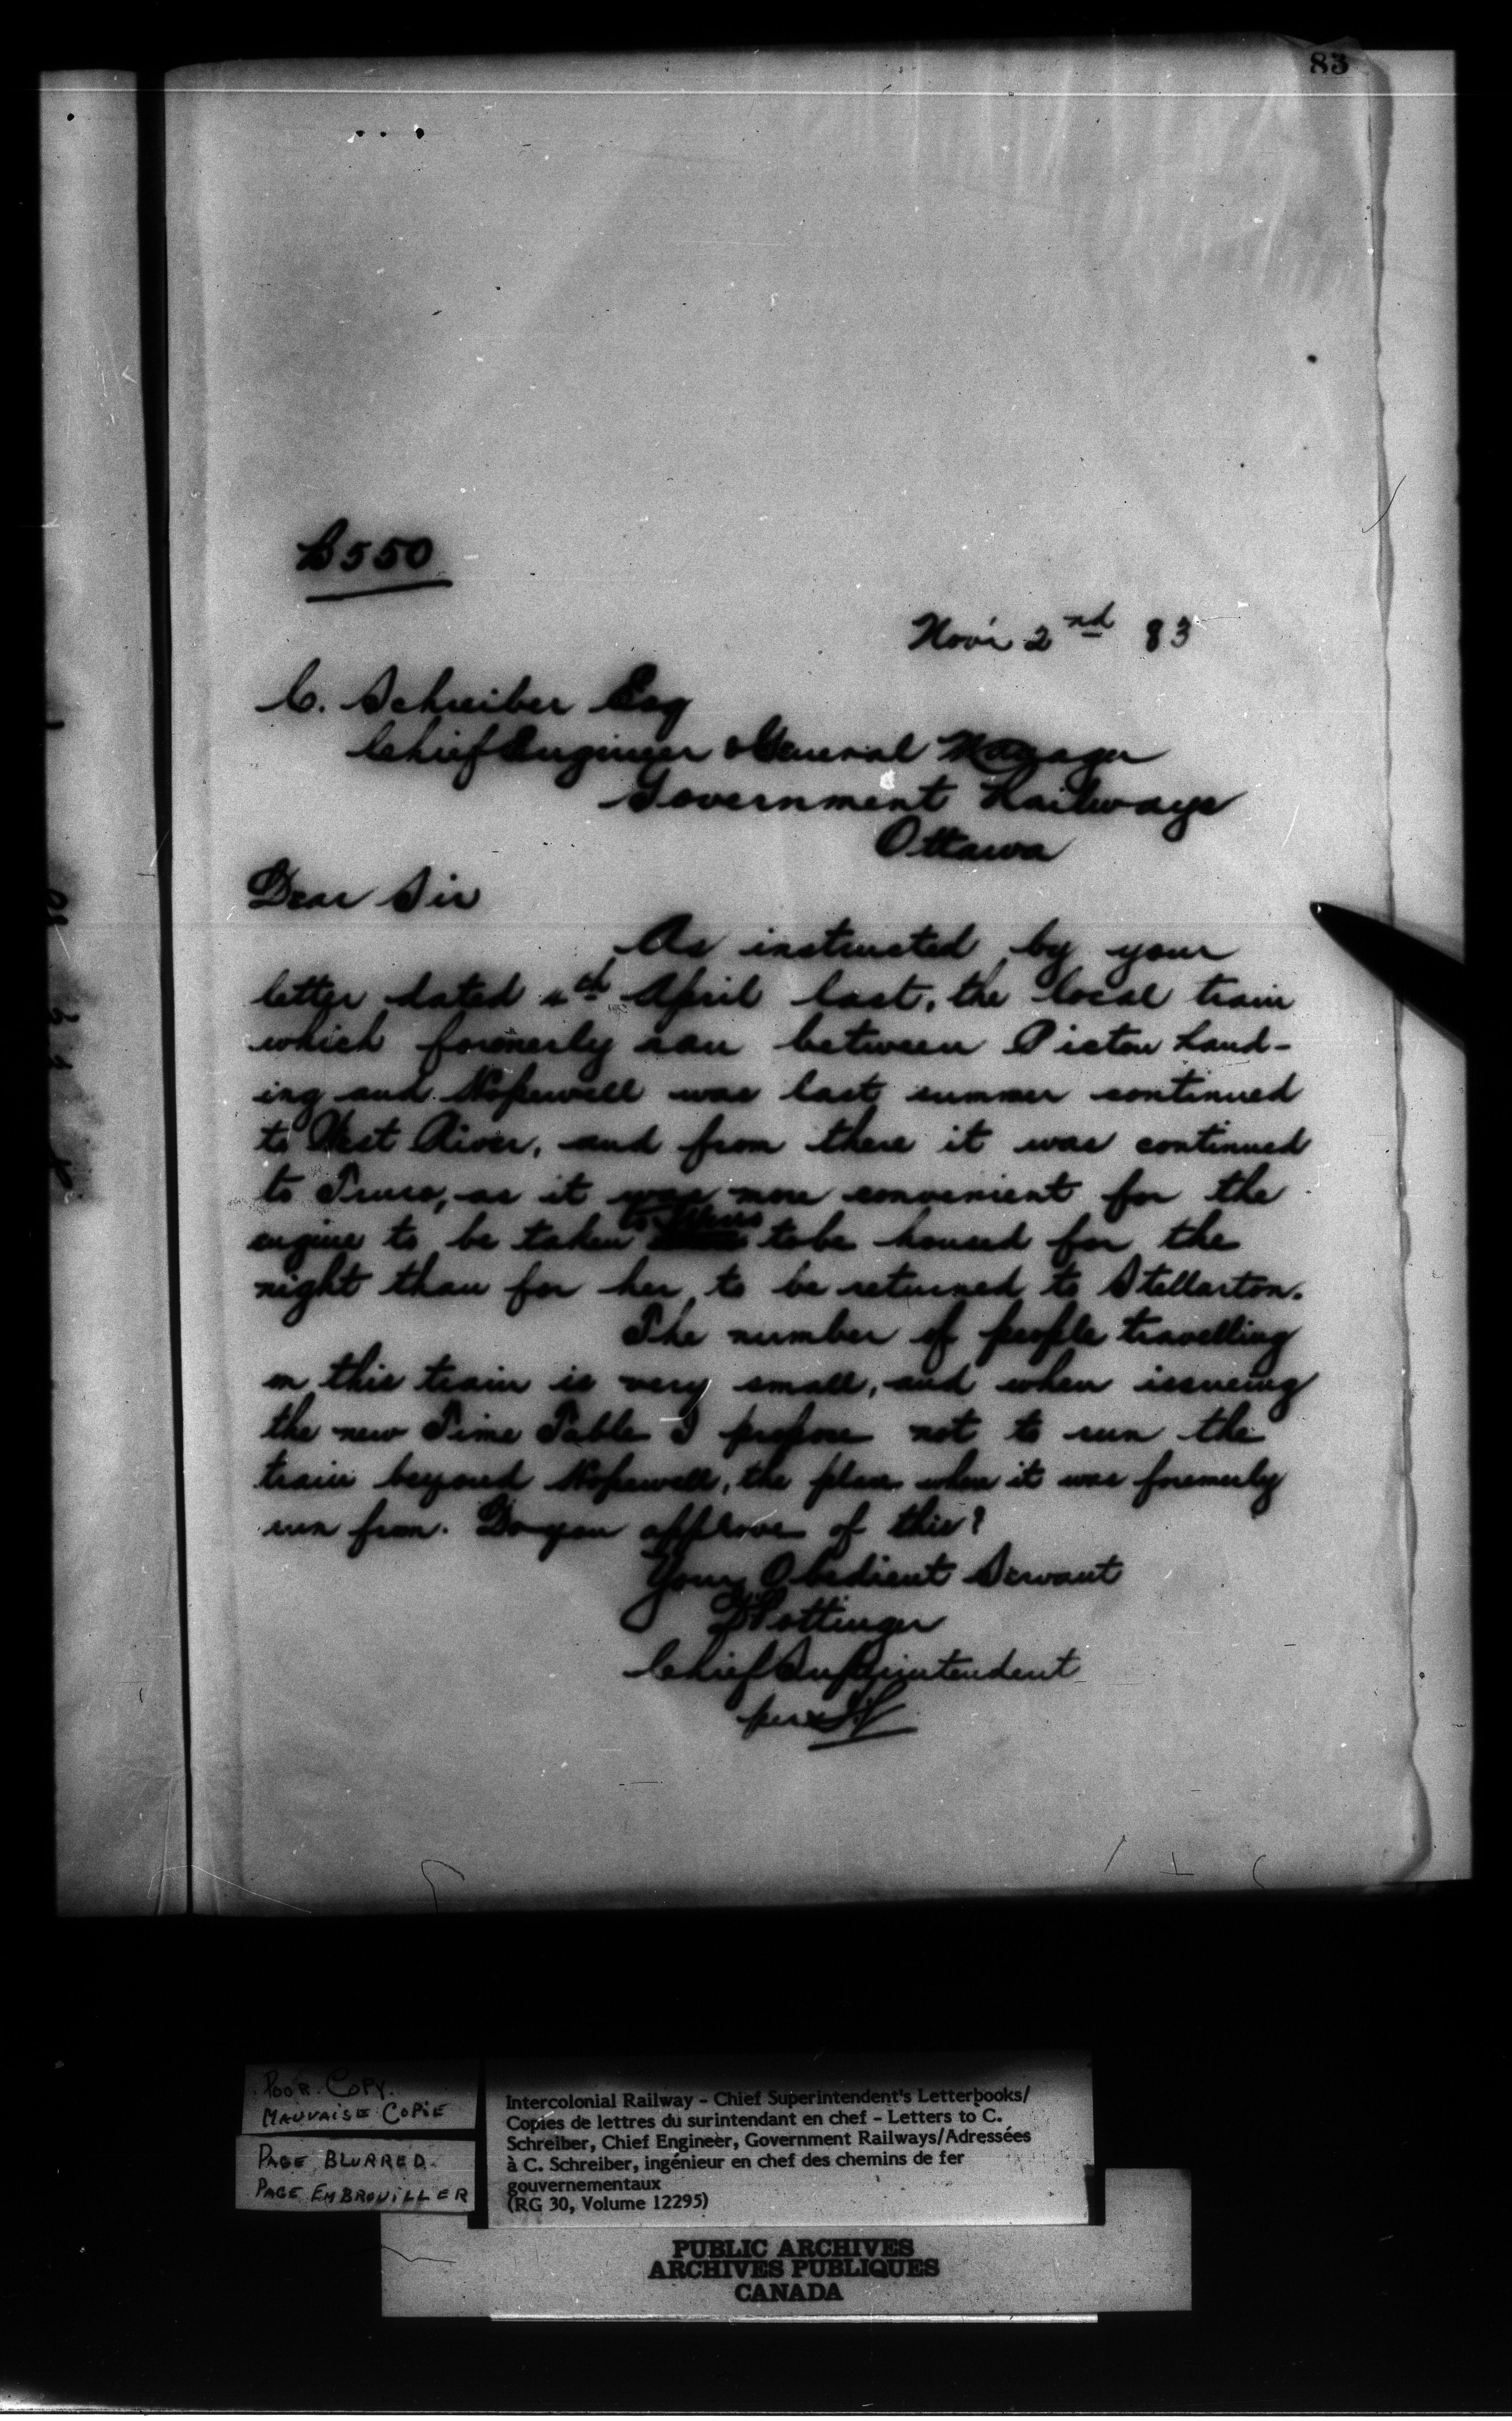 83
B550
Nov'r 2nd 83
C. Schreiber Esq
Chief Engineer & General Manager
Government Railways
Ottawa
Dear Sir
As instructed by your
letter dated 4th April last, the local train
which formerly ran between Pictou Land-
ing and Hopewell was last summer continued
to West River, and from there it was continued
to Truro, as it was more convenient for the
engine to be taken to Truro to be housed for the
night than for her to be returned to Stellarton.
The number of people travelling
on this train is very small, and when issueing
the new Time Table I propose not to run the
train beyond Hopewell, the place where it was formerly
run from. Do you approve of this?
Your Obedient Servant
D Pottinger
Chief Superintendent
per
POOR COPY.
MAUVAISE COPIE
PAGE BLURRED.
PAGE EMBROUILLER
Intercolonial Railway – Chief Superintendent's Letterbooks/
Copies de lettres du surintendant en chef – Letters to C.
Schreiber, Chief Engineer, Government Railways/Adressées
à C. Schreiber, ingénieur en chef des chemins de fer
gouvernementaux
(RG 30, Volume 12295)
PUBLIC ARCHIVES
ARCHIVES PUBLIQUES
CANADA